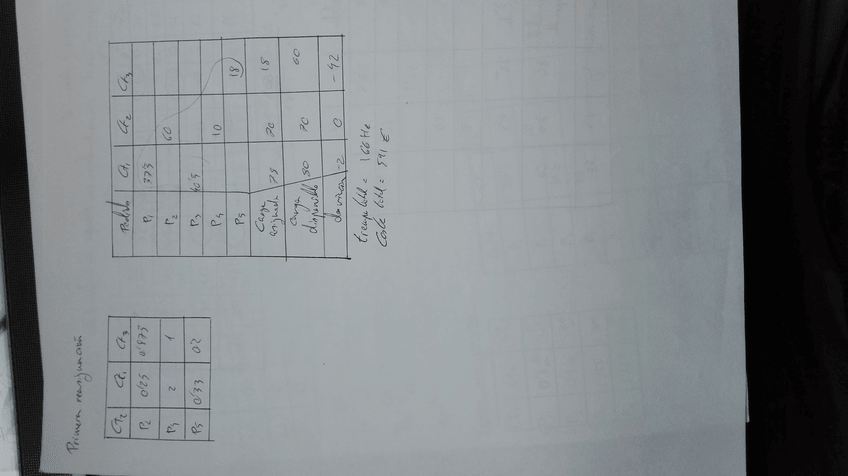 Primera reasignación
CT2 CT1 CT3
P2 0'25 0'875
P4 2 1
P5 0'33 0'2
Pedido CT1 CT2 CT3
P1 37'5
P2 60
P3 40'5
P4 10
P5 18
Carga asignada 78 70 18
Carga disponible 80 70 60
desviación -2 0 -42
tiempo total = 166 H
Coste total = 541 €